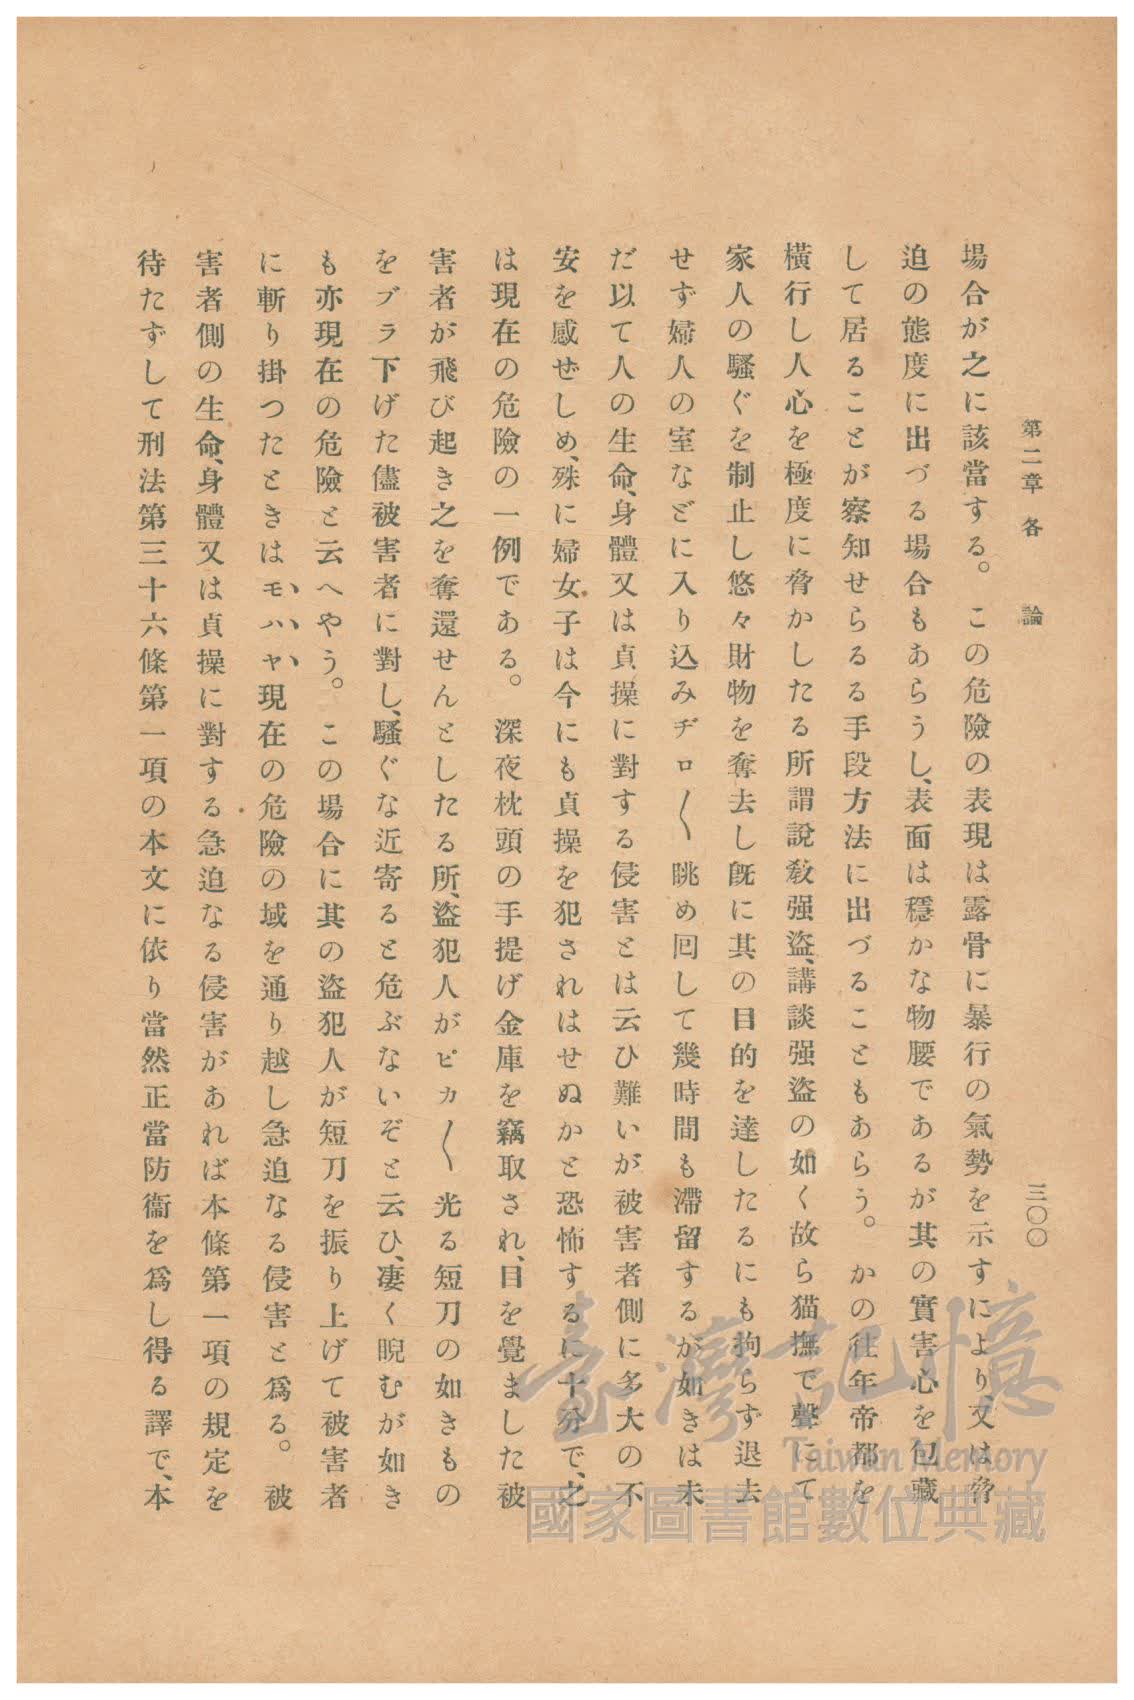 第二章 各 論
三〇〇
場合が之に該當する。この危險の表現は露骨に暴行の氣勢を示すにより、又は脅
迫の態度に出づる場合もあらうし、表面は穩かな物腰であるが其の實害心を包藏
して居ることが察知せらるる手段方法に出づることもあらう。かの往年帝都を
橫行し人心を極度に脅かしたる所謂說敎强盜、講談强盜の如く故ら猫撫で聲にて
家人の騷ぐを制止し悠々財物を奪去し旣に其の目的を達したるにも拘らず退去
せず婦人の室などに入り込みヂロ〱眺め囘して幾時間も滯留するが如きは未
だ以て人の生命、身體又は貞操に對する侵害とは云ひ難いが被害者側に多大の不
安を感ぜしめ、殊に婦女子は今にも貞操を犯されはせぬかと恐怖するに十分で、之
は現在の危險の一例である。深夜枕頭の手提げ金庫を竊取され、目を覺ました被
害者が飛び起き之を奪還せんとしたる所、盜犯人がピカ〱光る短刀の如きもの
をブラ下げた儘被害者に對し、騷ぐな近寄ると危ぶないぞと云ひ、凄く睨むが如き
も亦現在の危險と云へやう。この場合に其の盜犯人が短刀を振り上げて被害者
に斬り掛つたときはモハヤ現在の危險の域を通り越し急迫なる侵害と爲る。被
害者側の生命、身體又は貞操に對する急迫なる侵害があれば本條第一項の規定を
待たずして刑法第三十六條第一項の本文に依り當然正當防衞を爲し得る譯で、本
臺灣記憶
Taiwan Memory
國家圖書館數位典藏